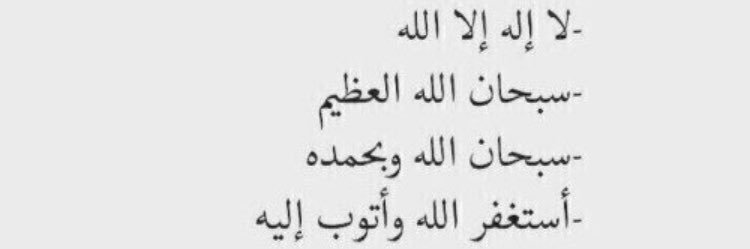 -لا إله إلا الله
-سبحان الله العظيم
-سبحان الله وبحمده
-أستغفر الله وأتوب إليه